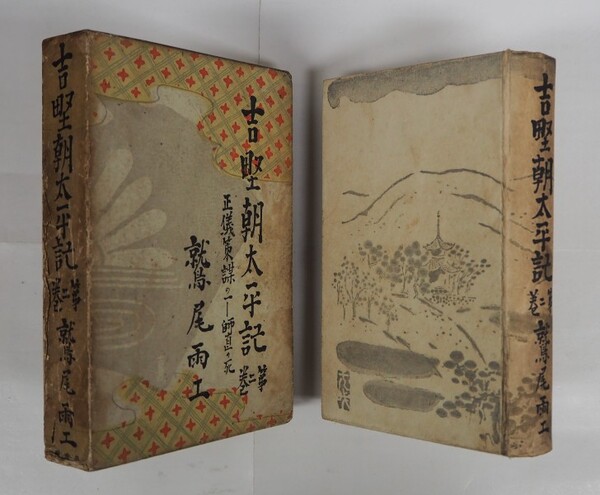 吉野朝太平記
第二巻
鷲尾雨工
吉野朝太平記
第二巻
正儀策謀の一—師直の死
鷲尾雨工
吉野朝太平記
第二巻
鷲尾雨工